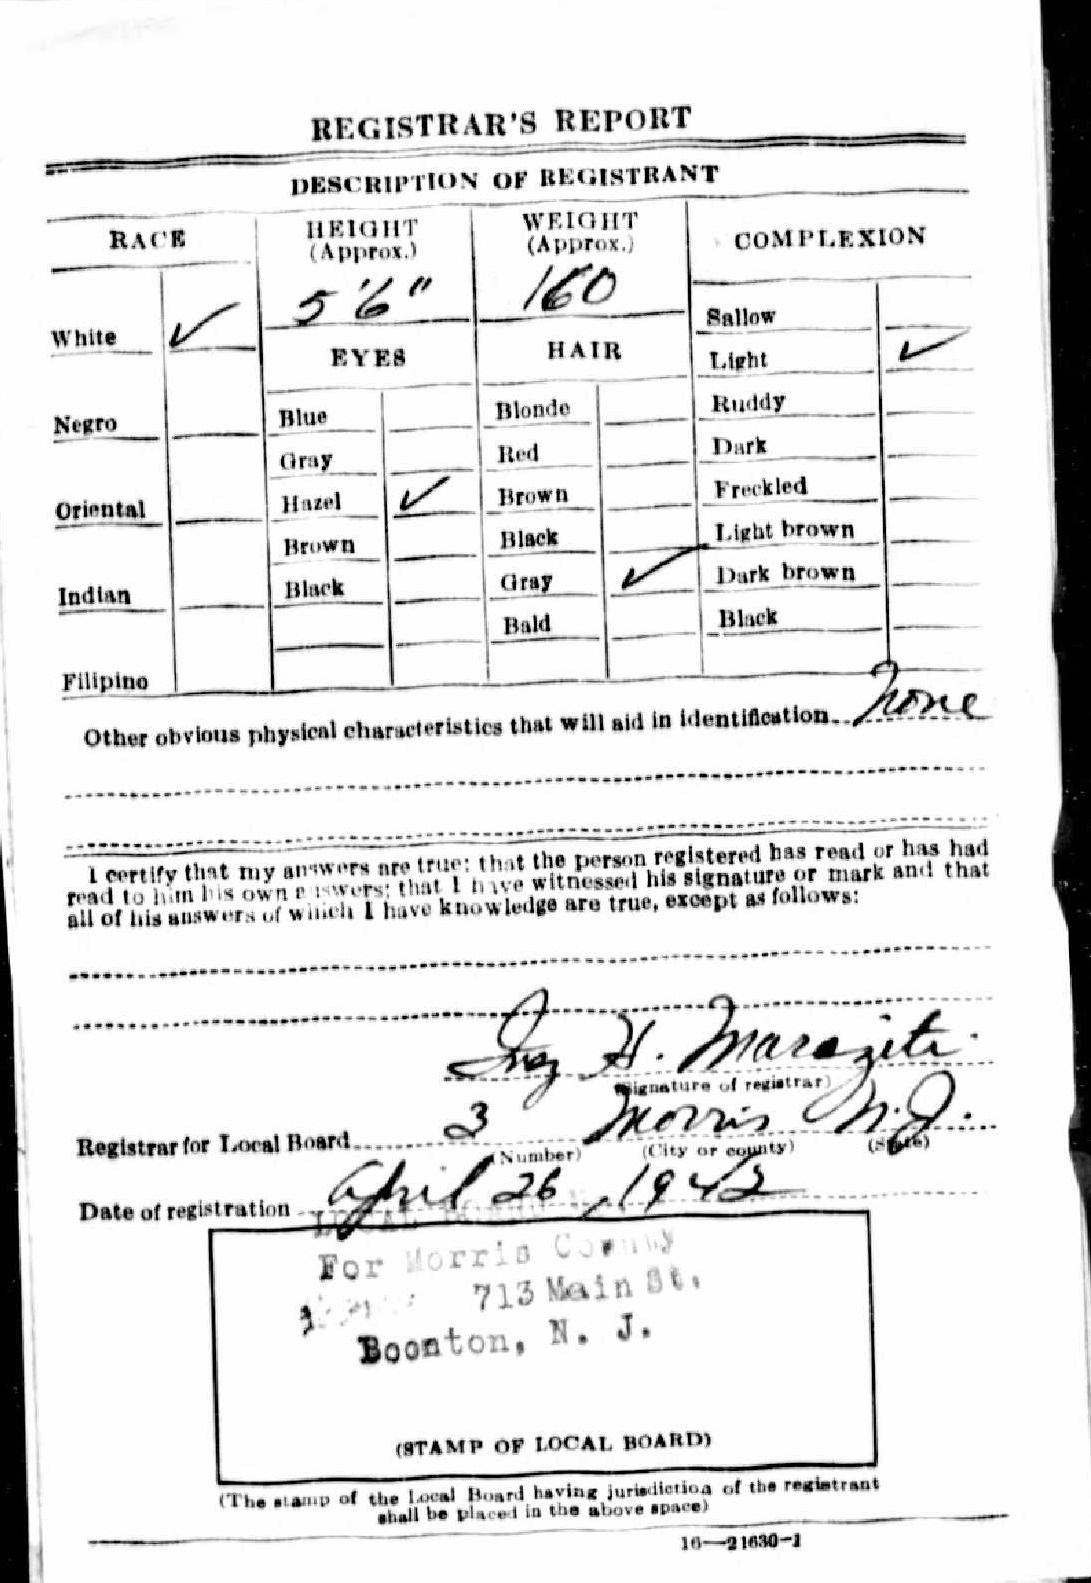 REGISTRAR'S REPORT
DESCRIPTION OF REGISTRANT
RACE
HEIGHT
(Approx.)
WEIGHT
(Approx.)
COMPLEXION
5'6"
160
White ✓
EYES
HAIR
Sallow
Light ✓
Negro
Blue
Blonde
Ruddy
Gray
Red
Dark
Oriental
Hazel ✓
Brown
Freckled
Brown
Black
Light brown
Indian
Black
Gray ✓
Dark brown
Bald
Black
Filipino
Other obvious physical characteristics that will aid in identification none
I certify that my answers are true; that the person registered has read or has had
read to him his own answers; that I have witnessed his signature or mark and that
all of his answers of which I have knowledge are true, except as follows:
Inez H. Marazite
(Signature of registrar)
Registrar for Local Board 3 Morris N.J.
(Number) (City or county) (State)
Date of registration April 26, 1942
LOCAL BOARD
For Morris County
713 Main St.
Boonton, N. J.
(STAMP OF LOCAL BOARD)
(The stamp of the Local Board having jurisdiction of the registrant
shall be placed in the above space)
16—21630-1